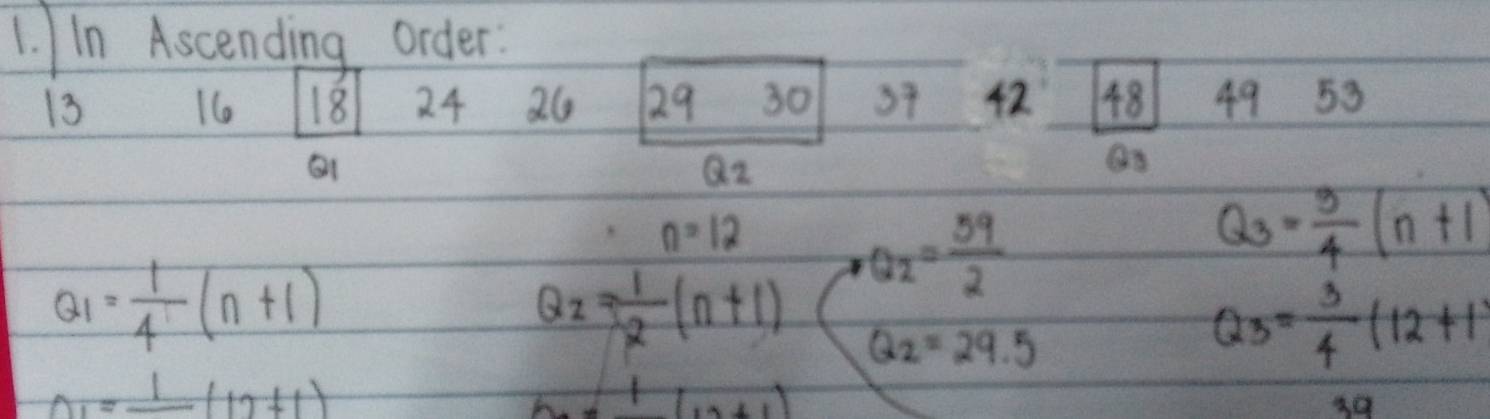 1.) In Ascending Order:
13 16 18 24 26 29 30 37 42 48 49 53
Q1 Q2 Q3
n=12
Q1 = 1/4 (n+1)
Q2 = 1/2 (n+1)
Q2 = 59/2
Q2 = 29.5
Q3 = 3/4 (n+1)
Q3 = 3/4 (12+1)
39